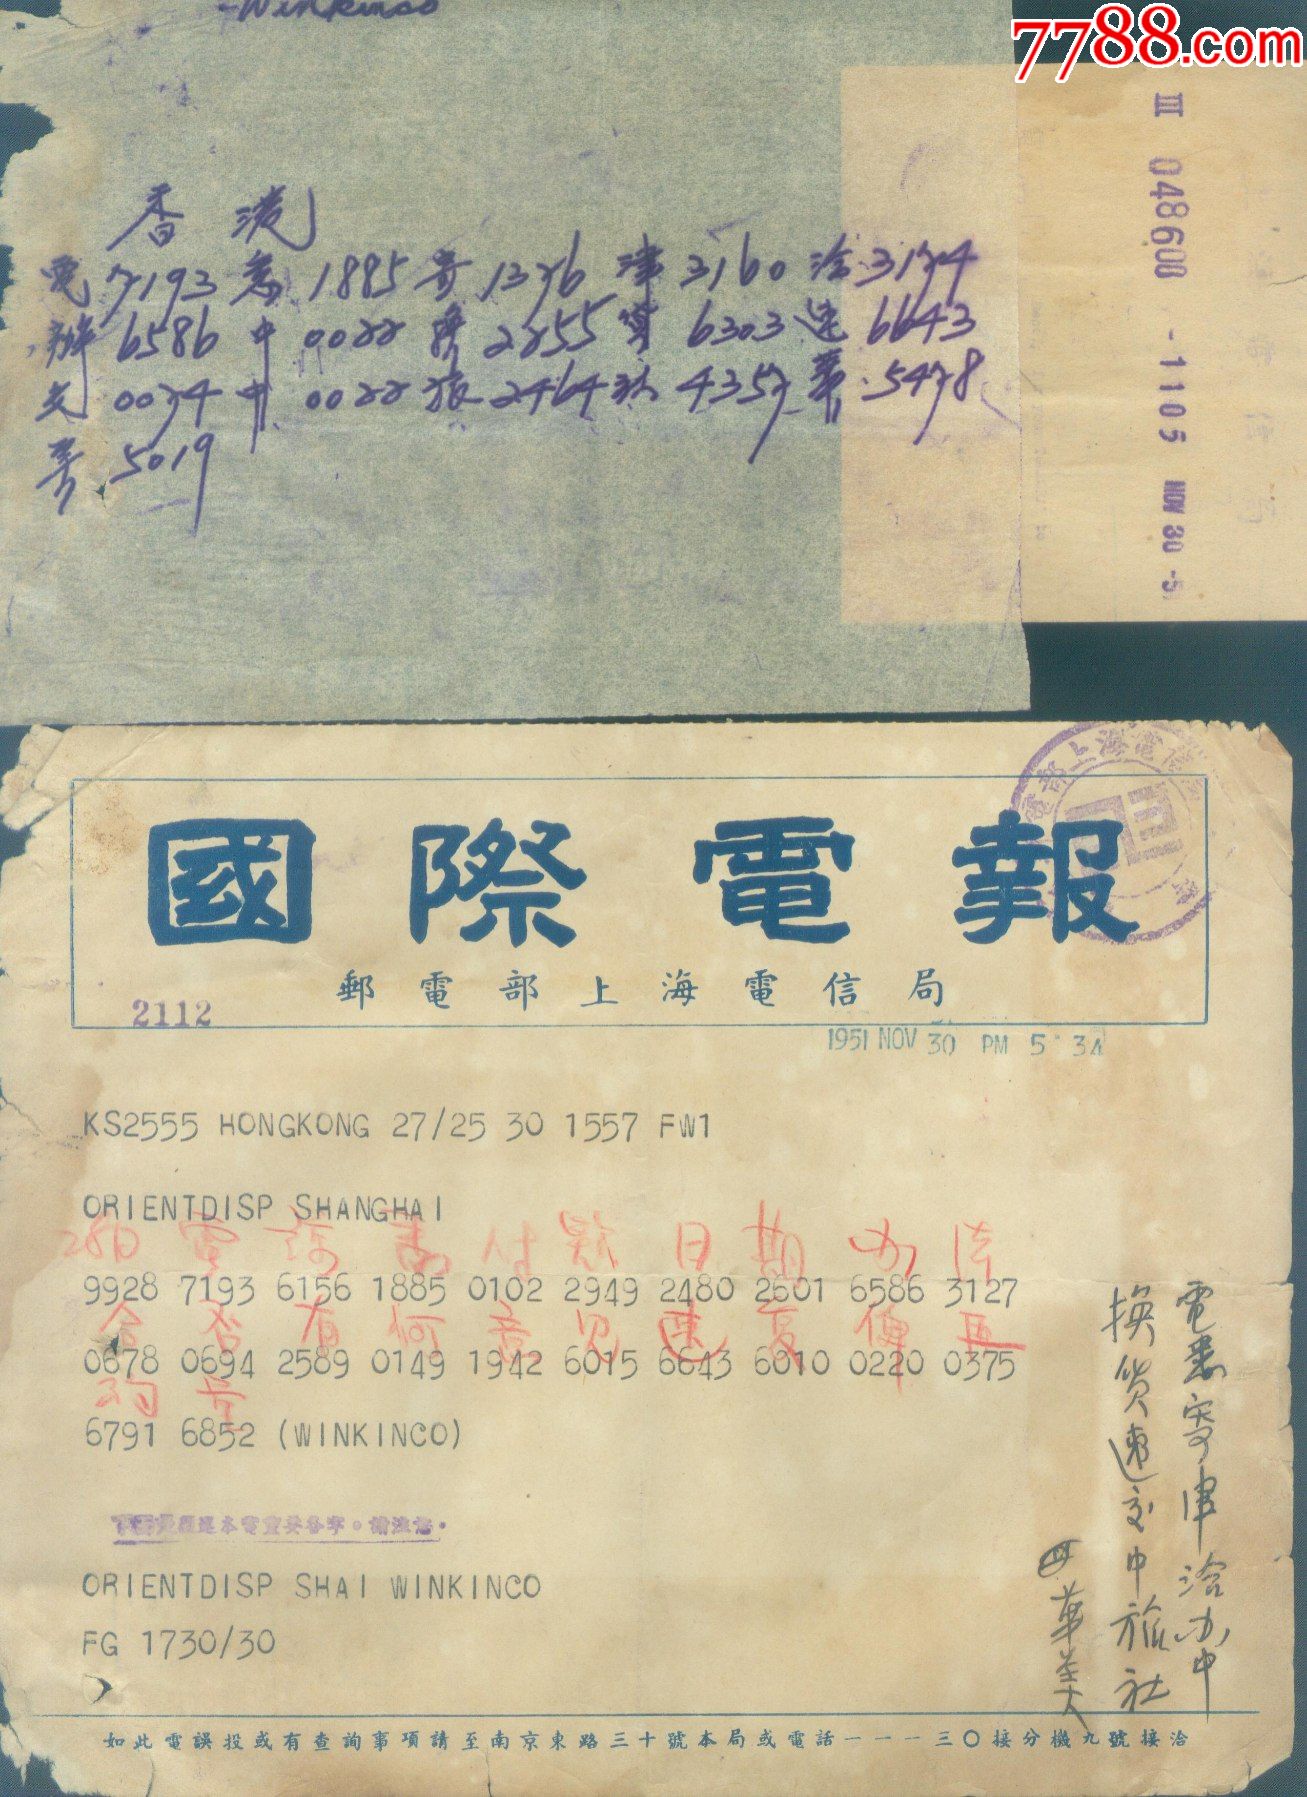 7788.com
-Winkinco
III 048608 -1105 NOV 30 -5
香港
電 7193 悉 1885 寄 1376 津 3160 洽 3174
辦 6586 中 0022 換 2255 貨 6303 速 6643
交 0074 中 0022 旅 2464 社 4357 華 5478
美 5019
國際電報
郵電部上海電信局
2112
1951 NOV 30 PM 5 34
KS2555 HONGKONG 27/25 30 1557 FW1
ORIENTDISP SHANGHAI
28日 電 請 悉 付 款 日 期 办 法
9928 7193 6156 1885 0102 2949 2480 2601 6586 3127
合 否 有 何 意 見 速 复 俾 再
0678 0694 2589 0149 1942 6015 6643 6010 0220 0375
6791 6852 (WINKINCO)
本電重要各字。請注意。
ORIENTDISP SHAI WINKINCO
FG 1730/30
電悉寄津洽办中
換貨速交中旅社
華美
如此電誤投或有查詢事項請至南京東路三十號本局或電話一一一三〇接分機九號接洽